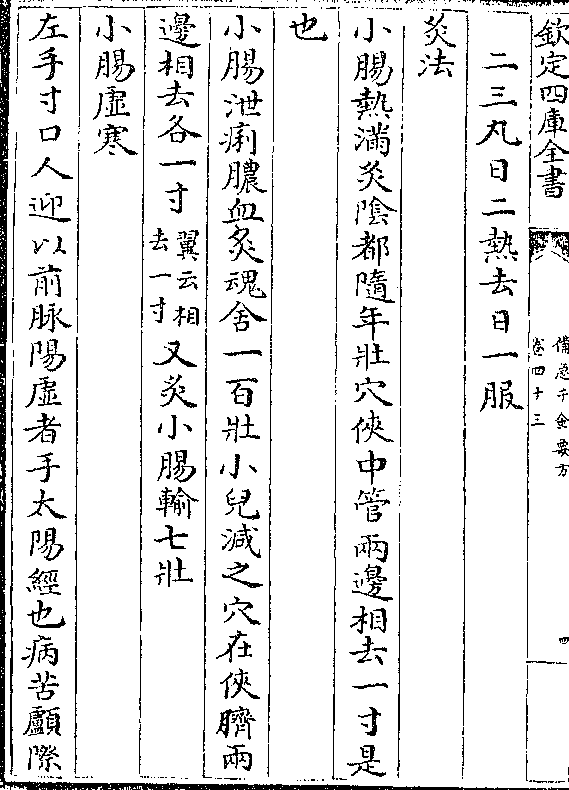 欽定四庫全書
備急千金要方
卷四十三
四
二三丸日二熱去日一服
灸法
小腸熱滿灸陰都隨年壯穴俠中管兩邊相去一寸是
也
小腸泄痢膿血灸魂舍一百壯小兒減之穴在俠臍兩
邊相去各一寸翼云相去一寸又灸小腸輸七壯
小腸虛寒
左手寸口人迎以前脉陽虛者手太陽經也病苦顱際